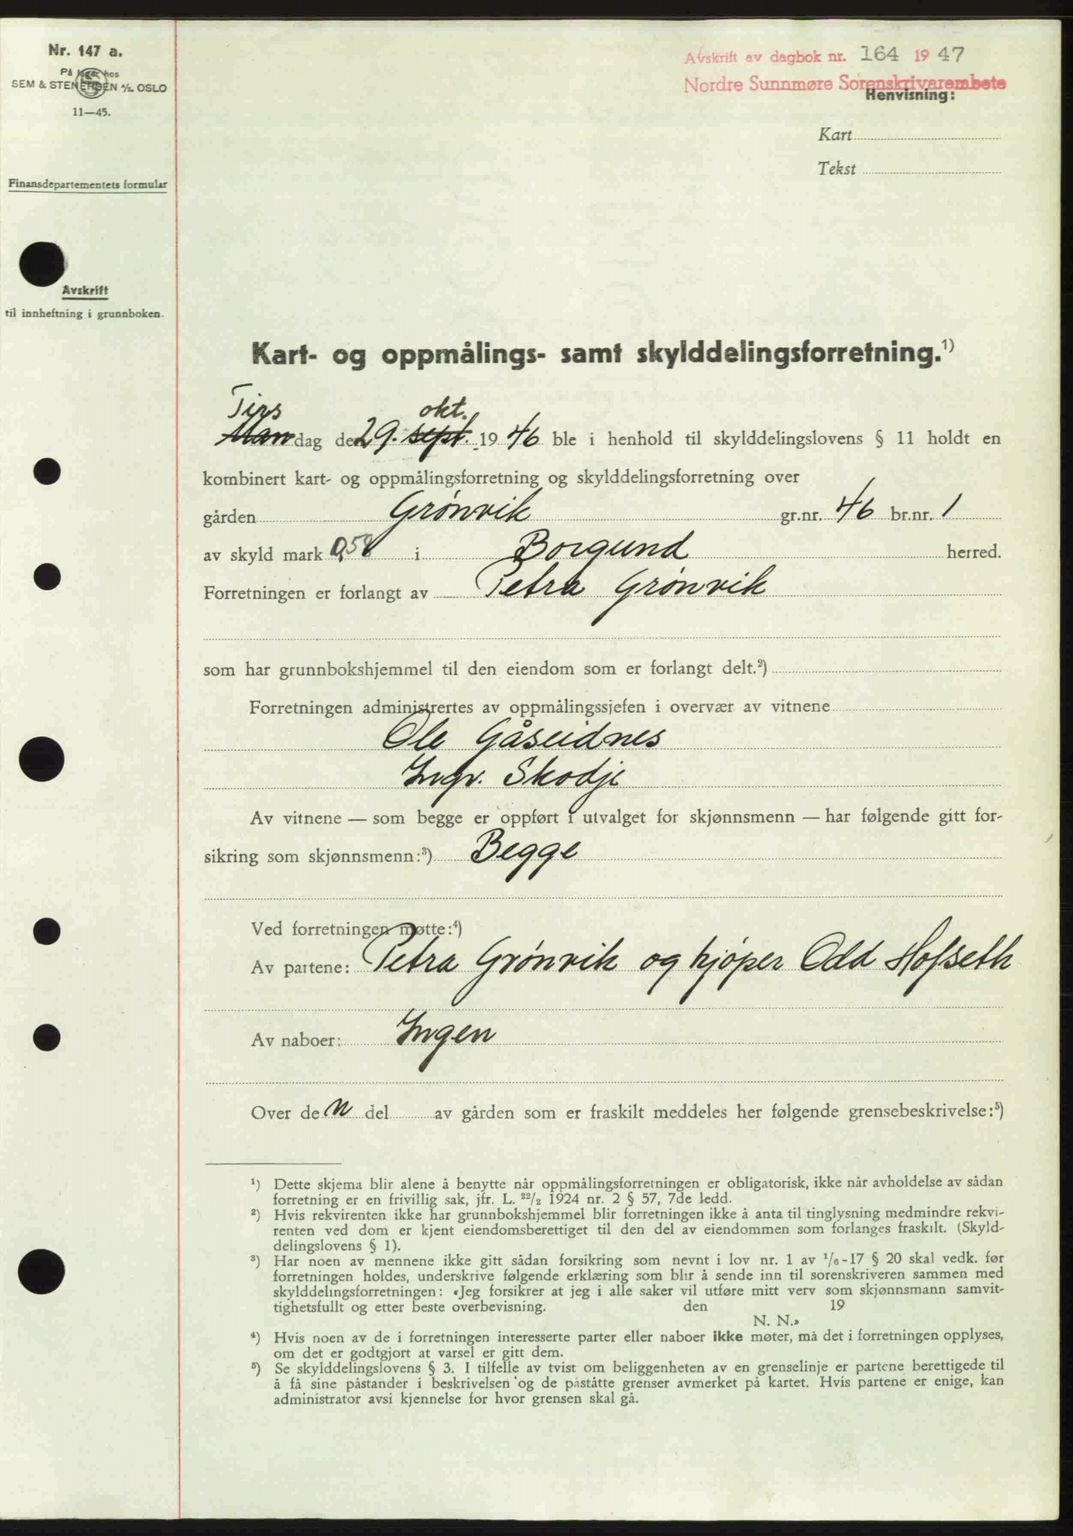 Nr. 147 a.
På lager hos
SEM & STENERSEN A/S. OSLO
11—45.
Finansdepartementets formular
Avskrift
til innheftning i grunnboken.
Avskrift av dagbok nr. 164 1947
Nordre Sunnmøre Sorenskrivarembete
Henvisning:
Kart
Tekst
Kart- og oppmålings- samt skylddelingsforretning.¹)
Tirs okt.
Mandag den 29. sept. 1946 ble i henhold til skylddelingslovens § 11 holdt en
kombinert kart- og oppmålingsforretning og skylddelingsforretning over
gården Grønvik gr.nr. 46 br.nr. 1
av skyld mark 0,50 i Borgund herred.
Forretningen er forlangt av Petra Grønvik
som har grunnbokshjemmel til den eiendom som er forlangt delt.²)
Forretningen administrertes av oppmålingssjefen i overvær av vitnene
Ole Gåseidnes
Ingv. Skodje
Av vitnene — som begge er oppført i utvalget for skjønnsmenn — har følgende gitt for-
sikring som skjønnsmenn:³) Begge
Ved forretningen møtte:⁴)
Av partene: Petra Grønvik og kjøper Odd Hofseth
Av naboer: Ingen
Over den del av gården som er fraskilt meddeles her følgende grensebeskrivelse:⁵)
¹) Dette skjema blir alene å benytte når oppmålingsforretningen er obligatorisk, ikke når avholdelse av sådan
forretning er en frivillig sak, jfr. L. ²²/₂ 1924 nr. 2 § 57, 7de ledd.
²) Hvis rekvirenten ikke har grunnbokshjemmel blir forretningen ikke å anta til tinglysning medmindre rekvi-
renten ved dom er kjent eiendomsberettiget til den del av eiendommen som forlanges fraskilt. (Skyld-
delingslovens § 1).
³) Har noen av mennene ikke gitt sådan forsikring som nevnt i lov nr. 1 av ¹/₆-17 § 20 skal vedk. før
forretningen holdes, underskrive følgende erklæring som blir å sende inn til sorenskriveren sammen med
skylddelingsforretningen: «Jeg forsikrer at jeg i alle saker vil utføre mitt verv som skjønnsmann samvit-
tighetsfullt og etter beste overbevisning. den 19
N. N.»
⁴) Hvis noen av de i forretningen interesserte parter eller naboer ikke møter, må det i forretningen opplyses,
om det er godtgjort at varsel er gitt dem.
⁵) Se skylddelingslovens § 3. I tilfelle av tvist om beliggenheten av en grenselinje er partene berettigede til
å få sine påstander i beskrivelsen og de påståtte grenser avmerket på kartet. Hvis partene er enige, kan
administrator avsi kjennelse for hvor grensen skal gå.